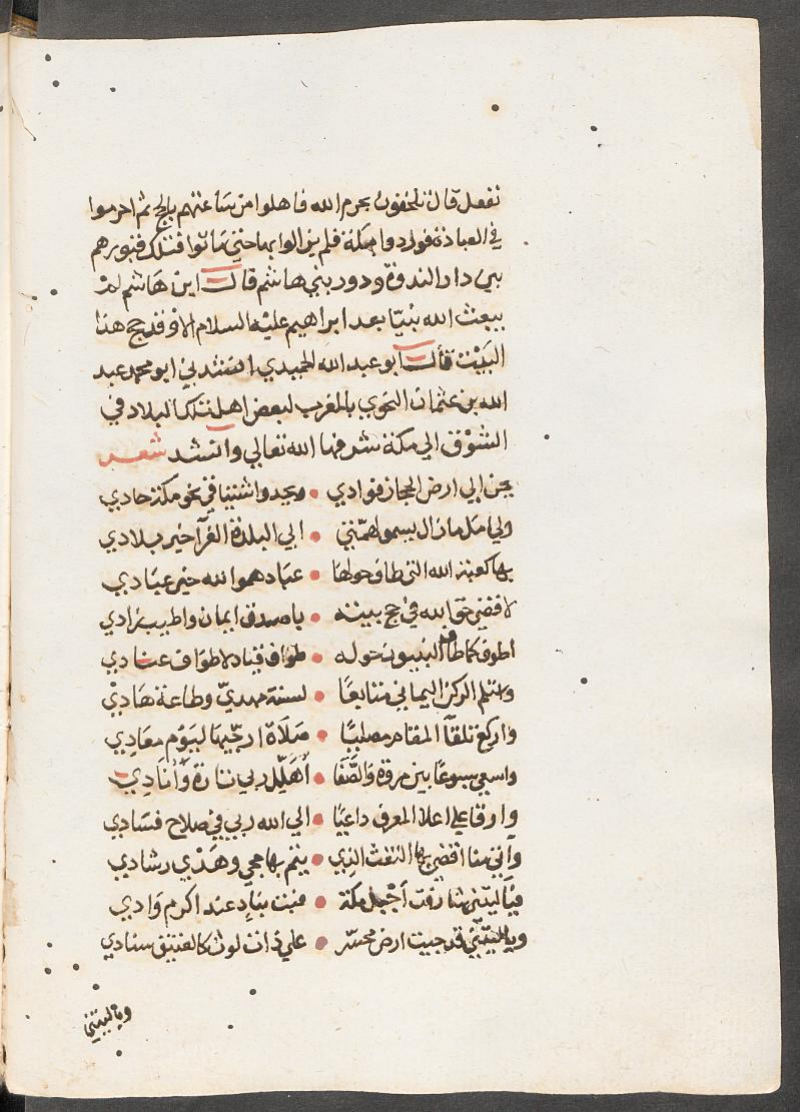 نفعل قال تلحقون بحرم الله فاهلوا من ساعتهم بالحج ثم احرموا
في العبادة فوردوا مكة فلم يزالوا بها حتي ماتوا فتلك قبورهم
بين دار الندوة ودور بني هاشم قال ابن هاشم لم
يبعث الله نبيا بعد ابراهيم عليه السلام الا وقد حج هذا
البيت قال ابو عبد الله الحميدي انشدني ابو محمد عبد
الله بن عثمان النحوي بالمغرب لبعض اهل تلك البلاد في
الشوق الي مكة شرفها الله تعالي وانشد شعر
يحن الي ارض الحجاز فوادي • ويحدوا اشتياقي نحو مكة حادي
ولي امل مازال يسموا بهمتي • الي البلدة الغرآ خير بلادي
بها كعبة الله التي طاف حولها • عباد هموا لله خير عبادي
لاقضي حق الله في حج بيته • باصدق ايمان واطيب زادي
اطوف كما طاف النبيون حوله • طواف قياد لا طواف عنادي
واستلم الركن اليماني متابعًا • لسنة مهديّ وطاعة هَادِيْ
واركع تلقآ المقام مصليًا • صَلَاة ارجّيها ليَوْم معَادِي
واسعي سبوعًا بين مروة وَالصَّفَا • أُهَلِّل ربي تارة وَأُنَادِي
واوقا علي اعلا المعرف داعيًا • الي الله ربي في صلاح فسَادِي
وآتي منا اقضي بها التفث الذِي • يتم بها حجي وهَدْي رشادي
فياليتني شارفت أجْبل مكة • فبت بنادٍ عند اكرم وَادي
وياليتني قد جبت ارض محسّر • علي ذات لوث كالفنيق سنادي
وياليتني